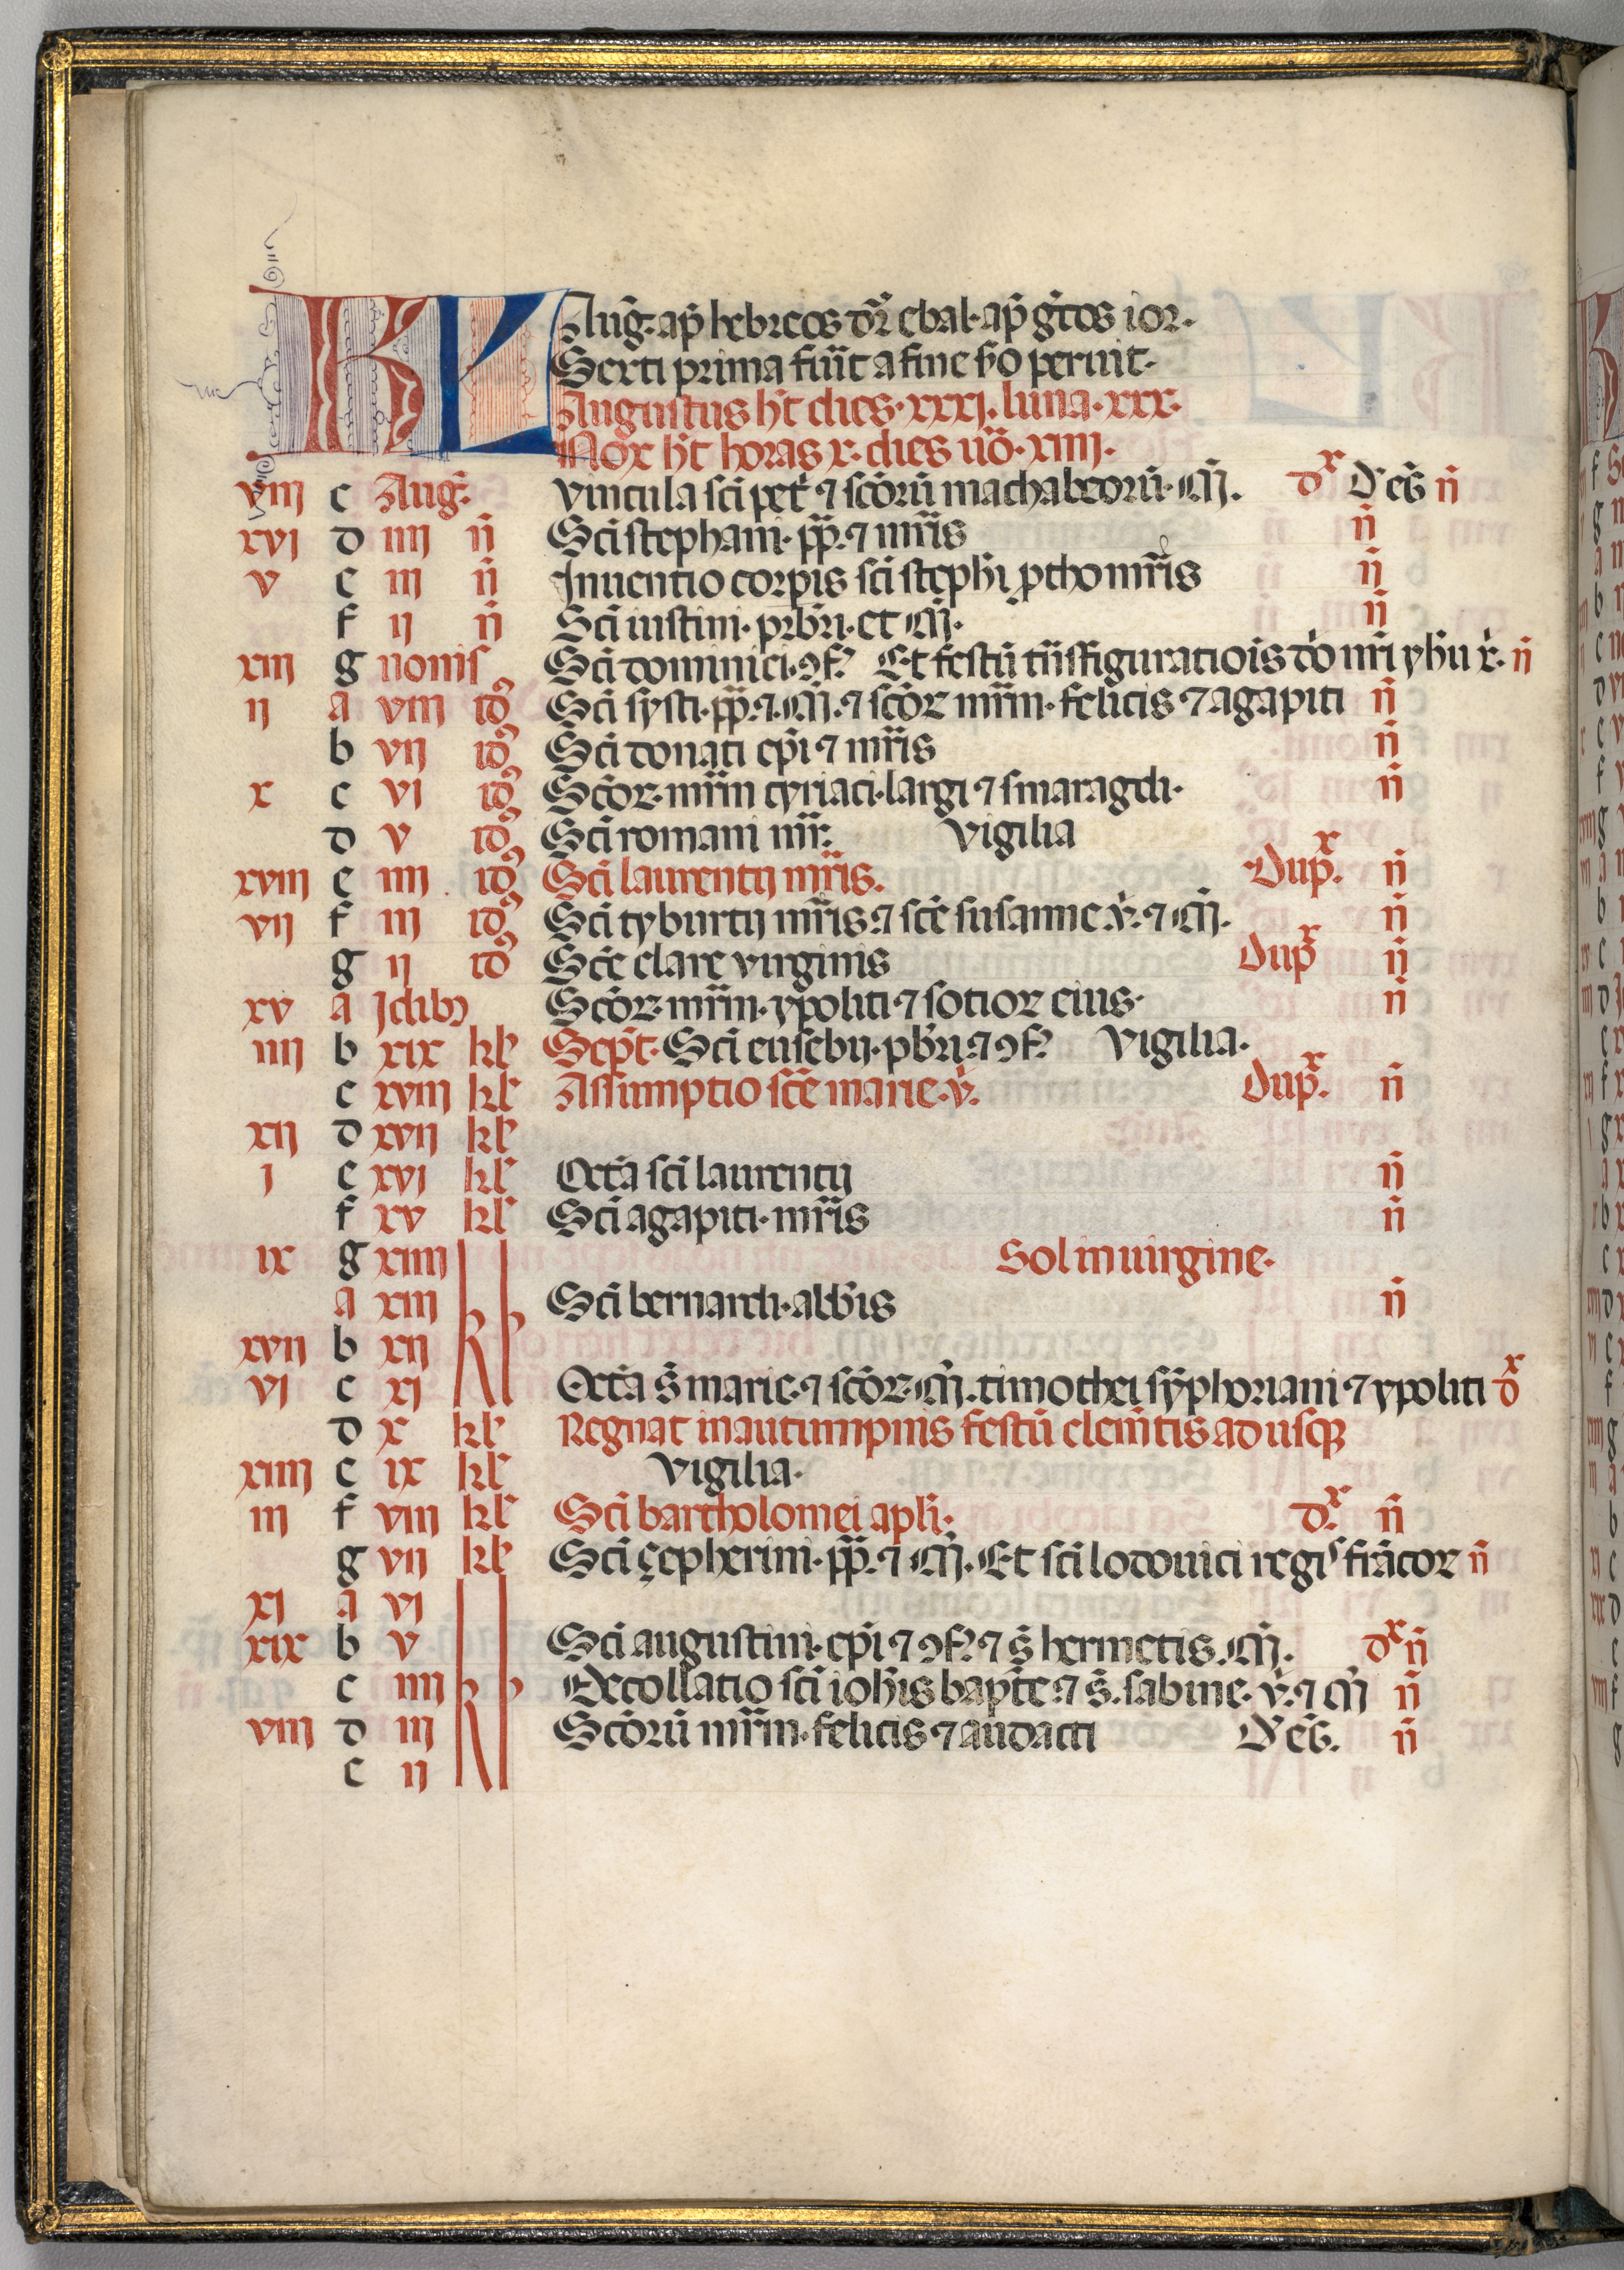 KL Aug̃. ap̃ hebreos dr̃ ebal. ap̃ g̃cos ior.
Serti prima fiũt a fine ṽo peruit.
Augustus h̃t dies. xxxj. luna. xxx.
Nox h̃t horas x. dies ũo. xiiij.
viij c Aug̃. vincula sc̃i pet̃ ⁊ sc̃oꝝ machabeoꝝ. M̃. dx D'eg̃ ñ
xvj d iiij ñ Sc̃i stephani. pp̃. ⁊ mr̃is ñ
v e iij ñ Inuentio corpis sc̃i steph̃i ꝓthomr̃is ñ
f ij ñ Sc̃i iustini. prb̃ri. et M̃. ñ
xiij g nonis Sc̃i dominici. ꝯf. Et festũ tñsfiguratiõis dõ nr̃i yh̃u x̃. ñ
ij a viij idꝰ Sc̃i systi. pp̃. ⁊. M̃. ⁊ sc̃or mr̃m. felicis ⁊ agapiti ñ
b vij idꝰ Sc̃i donati ep̃i ⁊ mr̃is ñ
x c vj idꝰ Sc̃or. mr̃m cyriaci. largi ⁊ smaragdi. ñ
d v idꝰ Sc̃i romani mr̃. vigilia
xviij e iiij idꝰ Sc̃i laurentij mr̃is. Dup̃x. ñ
vij f iij idꝰ Sc̃i tyburtij mr̃is. ⁊ sc̃e susanne ṽ. ⁊ M̃. ñ
g ij idꝰ Sc̃e clare virginis Dup̃x ñ
xv a Jdibꝰ Sc̃or. mr̃m. ypoliti. ⁊ sotior eius. ñ
iiij b xix kl Sep̃t. Sc̃i eusebij. pb̃ri. ⁊ ꝯf. vigilia.
c xviij kl Assumptio sc̃e marie. ṽ. Dup̃x. ñ
xij d xvij kl
j e xvj kl Octã sc̃i laurentij ñ
f xv kl Sc̃i agapiti. mr̃is ñ
ix g xiiij Sol in uirgine.
a xiij kl Sc̃i bernardi. abb̃is ñ
xvij b xij
vj c xj Octã s̃ marie. ⁊ sc̃or. M̃. timothei sỹphoriani. ⁊ ypoliti dx
d x kl Regnat in autumpnis festũ clem̃tis ad usqꝫ
xiiij e ix kl vigilia.
iij f viij kl Sc̃i bartholomei apl̃i. dx. ñ
g vij kl Sc̃i çepherini. pp̃. ⁊ M̃. Et sc̃i lodouici regis frãcor ñ
xj a vj
xix b v Sc̃i augustini. ep̃i ⁊ ꝯf. ⁊ s̃ hermetis. M̃. dx ñ
c iiij kl Decollatio sc̃i ioh̃is bap̃te. ⁊ s̃. sabine. ṽ. ⁊ M̃ ñ
viij d iij Sc̃oꝝ mr̃m. felicis ⁊ audacti D'eg̃. ñ
e ij